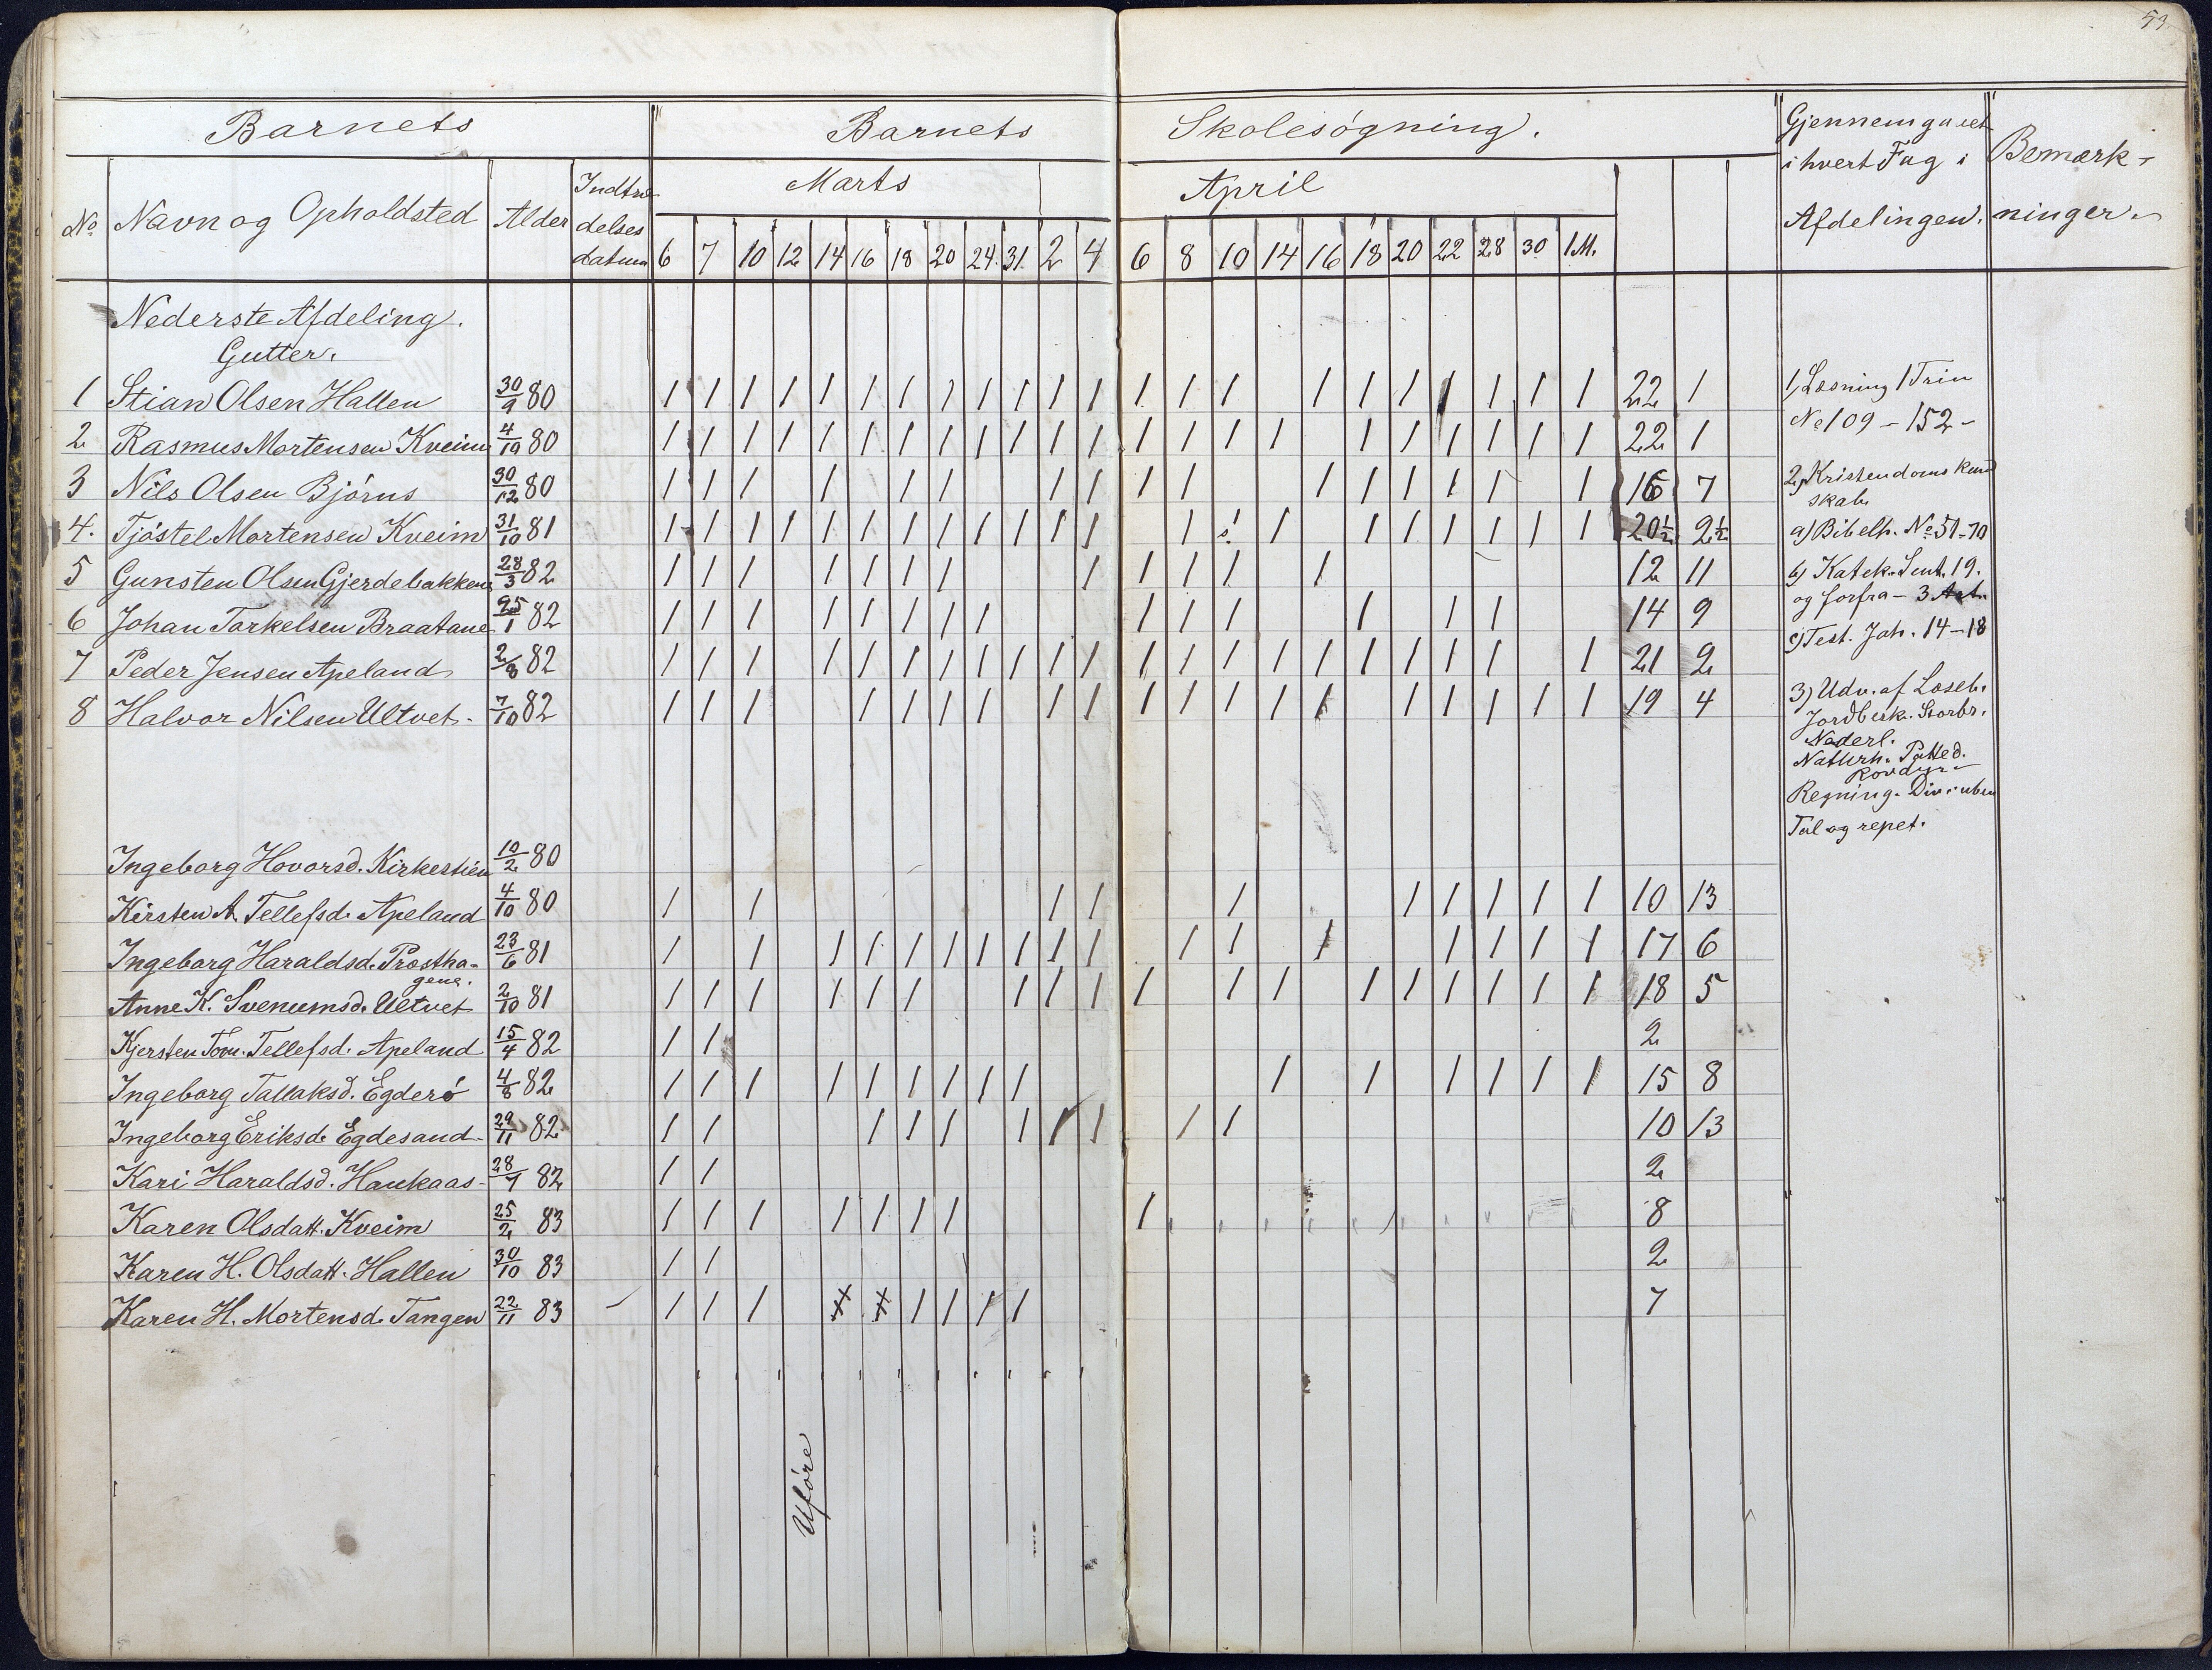 53.
Barnets Barnets Skolesøgning. Gjennemgaaet i hvert Fag i Afdelingen. Bemærkninger.
No Navn og Opholdsted Alder Indtrædelses datum Marts April
6 7 10 12 14 16 18 20 24. 31. 2 4 6 8 10 14 16 18 20 22 28 30 1M.
Nederste Afdeling.
Gutter.
1 Stian Olsen Hallen 30/9 80 / / / / / / / / / / / / / / / / / / / / / / 22 1
2 Rasmus Mortensen Kveim 4/10 80 / / / / / / / / / / / / / / / / / / / / / / 22 1
3 Nils Olsen Bjørns 30/12 80 / / / / / / / / / / / / / / / / 16 7
4. Tjøstel Mortensen Kveim 31/10 81 / / / / / / / / / / / / / / / / / / / / / 20½ 2½
5 Gunsten Olsen Gjerdebakkene 28/3 82 / / / / / / / / / / / / 12 11
6 Johan Torkelsen Braatane 25/1 82 / / / / / / / / / / / / / / 14 9
7 Peder Jensen Apeland 2/8 82 / / / / / / / / / / / / / / / / / / / / / 21 2
8 Halvor Nilsen Ultvet. 7/10 82 / / / / / / / / / / / / / / / / / / / 19 4
Ingeborg Hovorsd. Kirkestien 10/2 80
Kirsten A. Tellefsd. Apeland 4/10 80 / / / / / / / / / / 10 13
Ingeborg Haraldsd. Prostha-
gene. 23/6 81 / / / / / / / / / / / / / / / / / 17 6
Anne K. Svenumsd. Ultvet 2/10 81 / / / / / / / / / / / / / / / / / / 18 5
Kjersten Tom. Tellefsd. Apeland 15/4 82 / / 2
Ingeborg Tallaksd. Egderø 4/8 82 / / / / / / / / / / / / / / / 15 8
Ingeborg Eriksd. Egdesand 29/11 82 / / / / / / / / / / 10 13
Kari Haraldsd. Haukaas 28/7 82 / / 2
Karen Olsdatt. Kveim 25/2 83 / / / / / / / / 8
Karen H. Olsdatt. Hallen 30/10 83 / / 2
Karen H. Mortensd. Tangen 22/11 83 / / / / / / / 7
Uføre
1, Læsning 1 Trin
No 109 - 152 -
2, Kristendoms kund
skab.
a) Bibelh. No 51-70
b) Katek. Sent. 19.
og forfra - 3 Art.
c) Test. Joh. 14-18
3) Udv. af Læseb.
Jordbesk. Storbr.
Nederl.
Naturh. Patted.
Rovdyr
Regning. Div. i uben
Tal og repet.